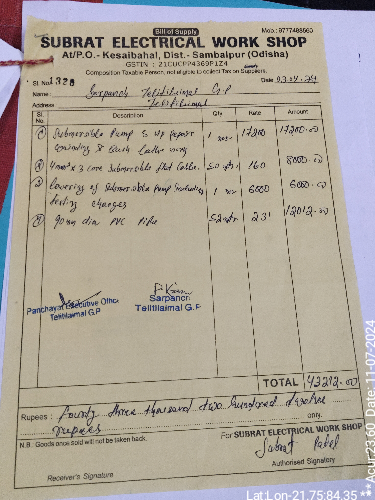 Bill of Supply
Mob.: 9777488560
SUBRAT ELECTRICAL WORK SHOP
At/P.O.- Kesaibahal, Dist.- Sambalpur (Odisha)
GSTIN : 21CUCPP4369P1Z4
Composition Taxable Person, not eligible to collect Tax on Suppliers.
Sl. No. 1328
Date 03.04.24
Name Sarpanch Telitilaimal G.P
Address Telitilaimal
Sl. No. Description Qty Rate Amount
1 Submersible Pump 5 Hp repair 1 17200 17200.00
rewinding &
2 4mm² x 3 core Submersible flat Cable. 50 mtr 160 8000.00
3 lowering of Submersible Pump including 1 6000 6000.00
testing charges
4 90 mm dia PVC Pipe 52 mtr 231 12012.00
Panchayat Executive Officer
Telitilaimal G.P
Sarpanch
Telitilaimal G.P
TOTAL 43212.00
Rupees : Fourty three thousand two hundred twelve
rupees only.
N.B. Goods once sold will not be taken back.
For SUBRAT ELECTRICAL WORK SHOP
Subrat Patel
Receiver's Signature
Authorised Signatory
Lat:Lon-21.75:84.35 ***Acu: 23.60 Date: 11-07-2024